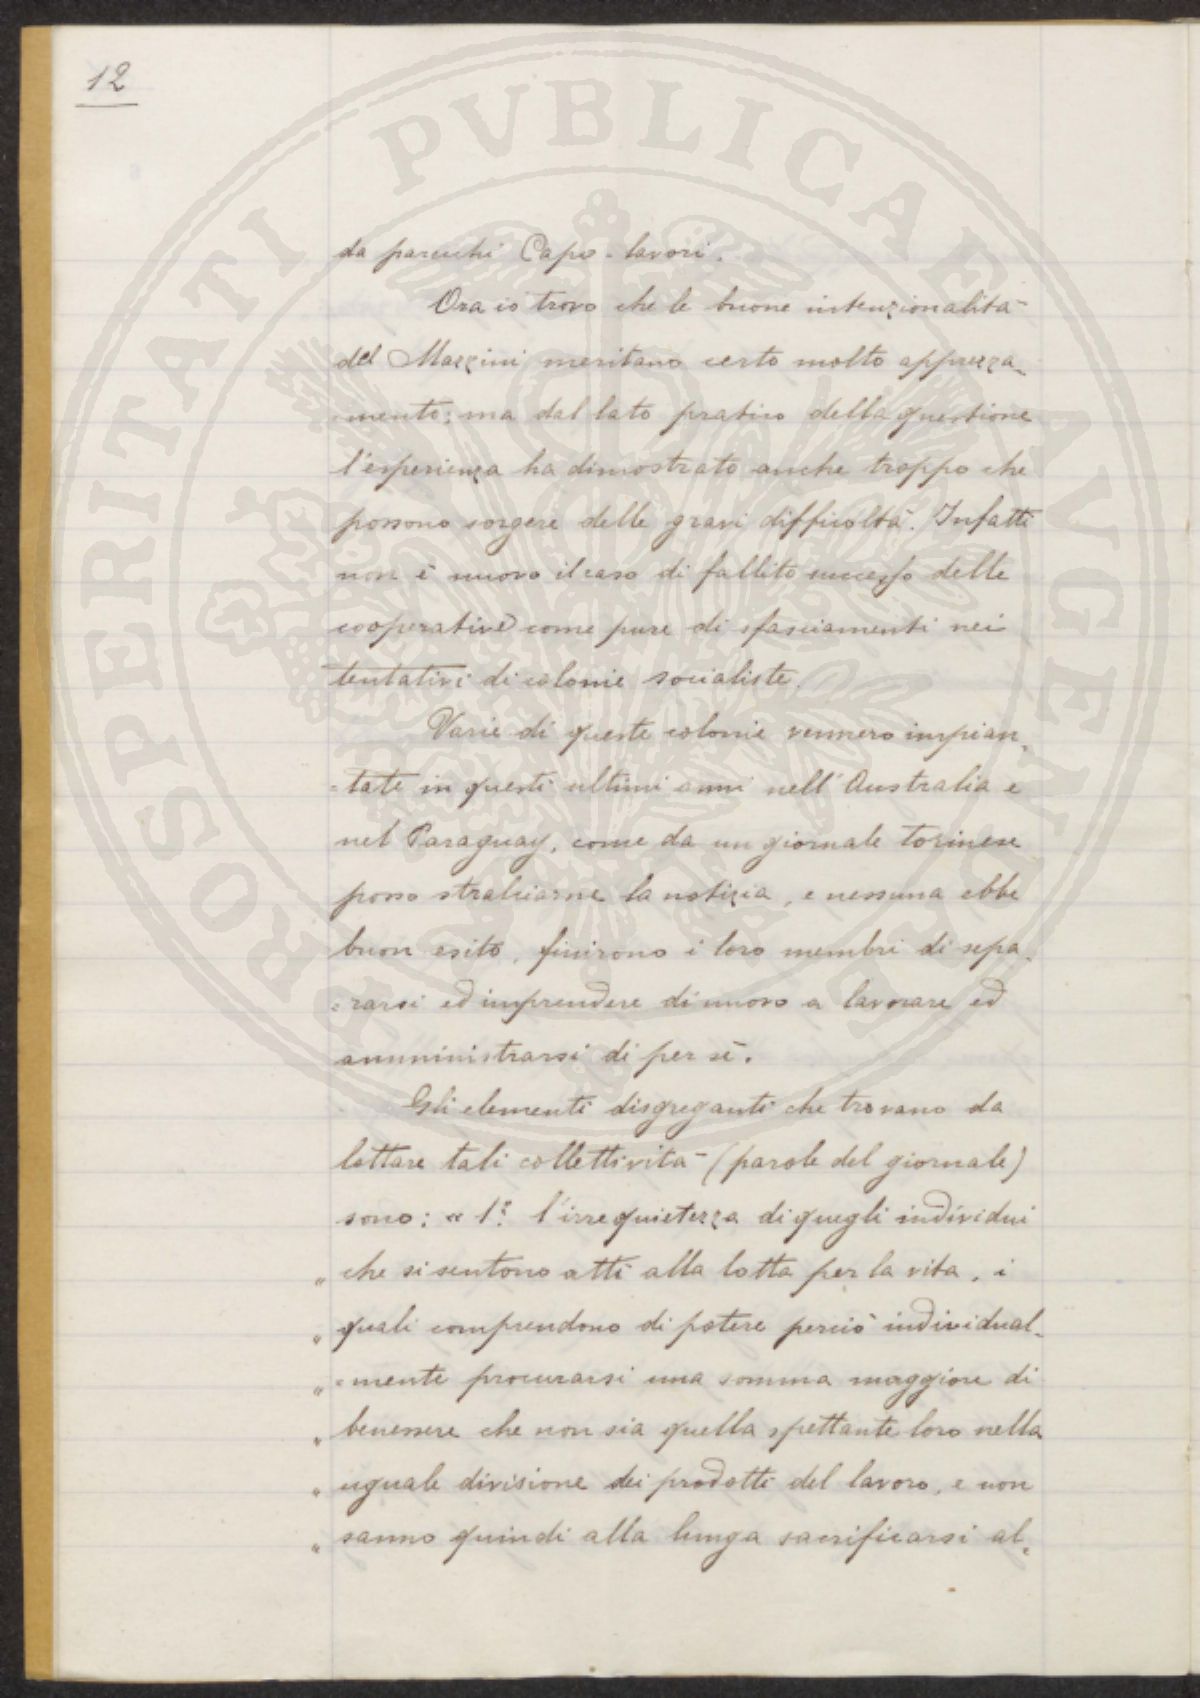 12
da parecchi Capo-lavori.
Ora io trovo che le buone intenzionalità
del Mazzini meritano certo molto apprezza-
-mento; ma dal lato pratico della questione
l'esperienza ha dimostrato anche troppo che
possono sorgere delle gravi difficoltà. Infatti
non è nuovo il caso di fallito successo delle
cooperative come pure di sfasciamenti nei
tentativi di colonie socialiste.
Varie di queste colonie vennero impian-
-tate in questi ultimi anni nell'Australia e
nel Paraguay, come da un giornale torinese
posso stralciarne la notizia, e nessuna ebbe
buon esito, finirono i loro membri di sepa-
-rarsi ed imprendere di nuovo a lavorare ed
amministrarsi di per sè.
Gli elementi disgreganti che trovano da
lottare tali collettività (parole del giornale)
sono: « 1º. l'irrequietezza di quegli individui
" che si sentono atti alla lotta per la vita, i
" quali comprendono di potere perciò individual-
" -mente procurarsi una somma maggiore di
" benessere che non sia quella spettante loro nella
" uguale divisione dei prodotti del lavoro, e non
" sanno quindi alla lunga sacrificarsi al-
PROSPERITATI PVBLICAE AVGENDAE